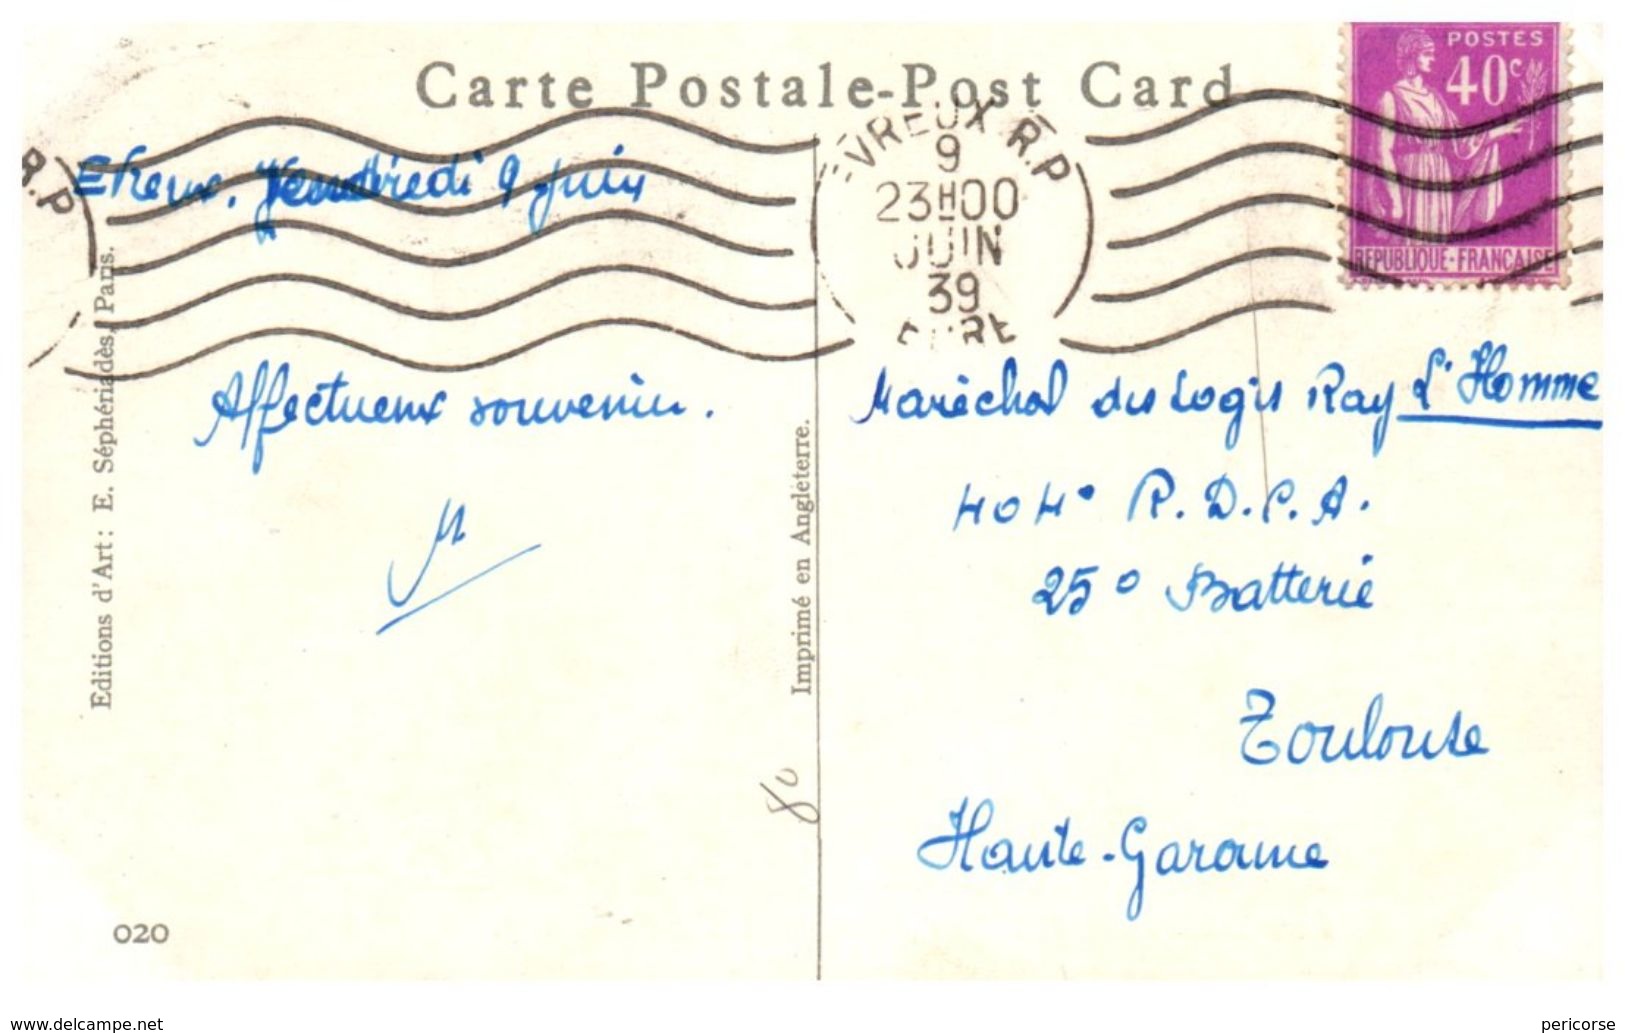 Carte Postale-Post Card
POSTES
40c
REPUBLIQUE-FRANÇAISE
R.P
EVREUX R.P
9
23H00
JUIN
39
EURE
Vendredi 9 Juin
Affectueux souvenir.
Maréchal des Logis Ray L'Homme
404° R.D.C.A.
25° Batterie
Toulouse
Haute-Garonne
Editions d'Art: E. Séphériadès, Paris.
Imprimé en Angleterre.
80
020
www.delcampe.net
pericorse